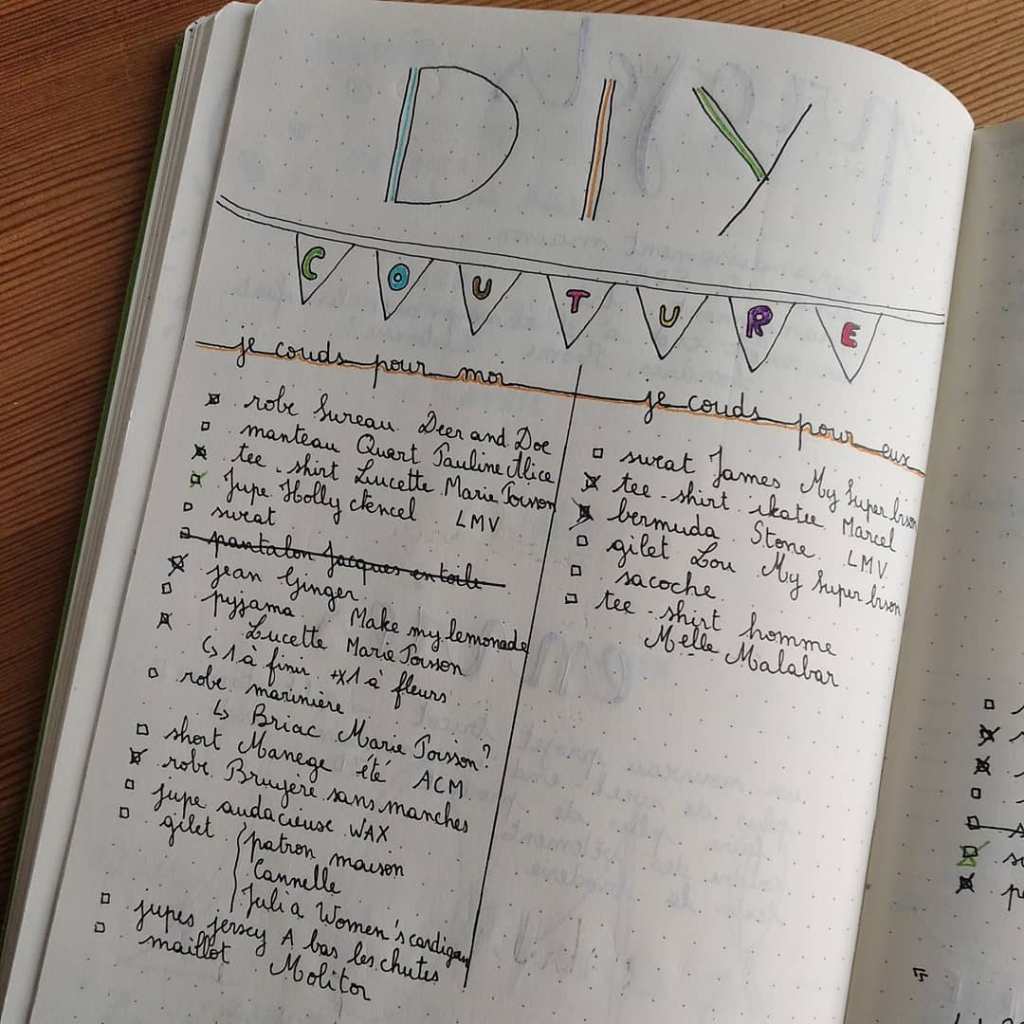 DIY
COUTURE
je couds pour moi
robe Sureau Deer and Doe
manteau Quart Pauline Alice
tee-shirt Lucette Marie Poisson
Jupe Holly LMV
sweat
pantalon Jacques en toile
jean Ginger
pyjama Make my lemonade
Lucette Marie Poisson
↳ 1 à finir + 1 à fleurs
robe marinière
↳ Briac Marie Poisson?
short Manege été ACM
robe Bruyère sans manches
jupe audacieuse WAX
gilet patron maison
Cannelle
Julia Women's cardigan
jupes jersey A bas les chutes
maillot Molitor
je couds pour eux
sweat James My Super bison
tee-shirt ikatee Marcel
bermuda Stone LMV
gilet Lou My Super bison
sacoche
tee-shirt homme
Melle Malabar